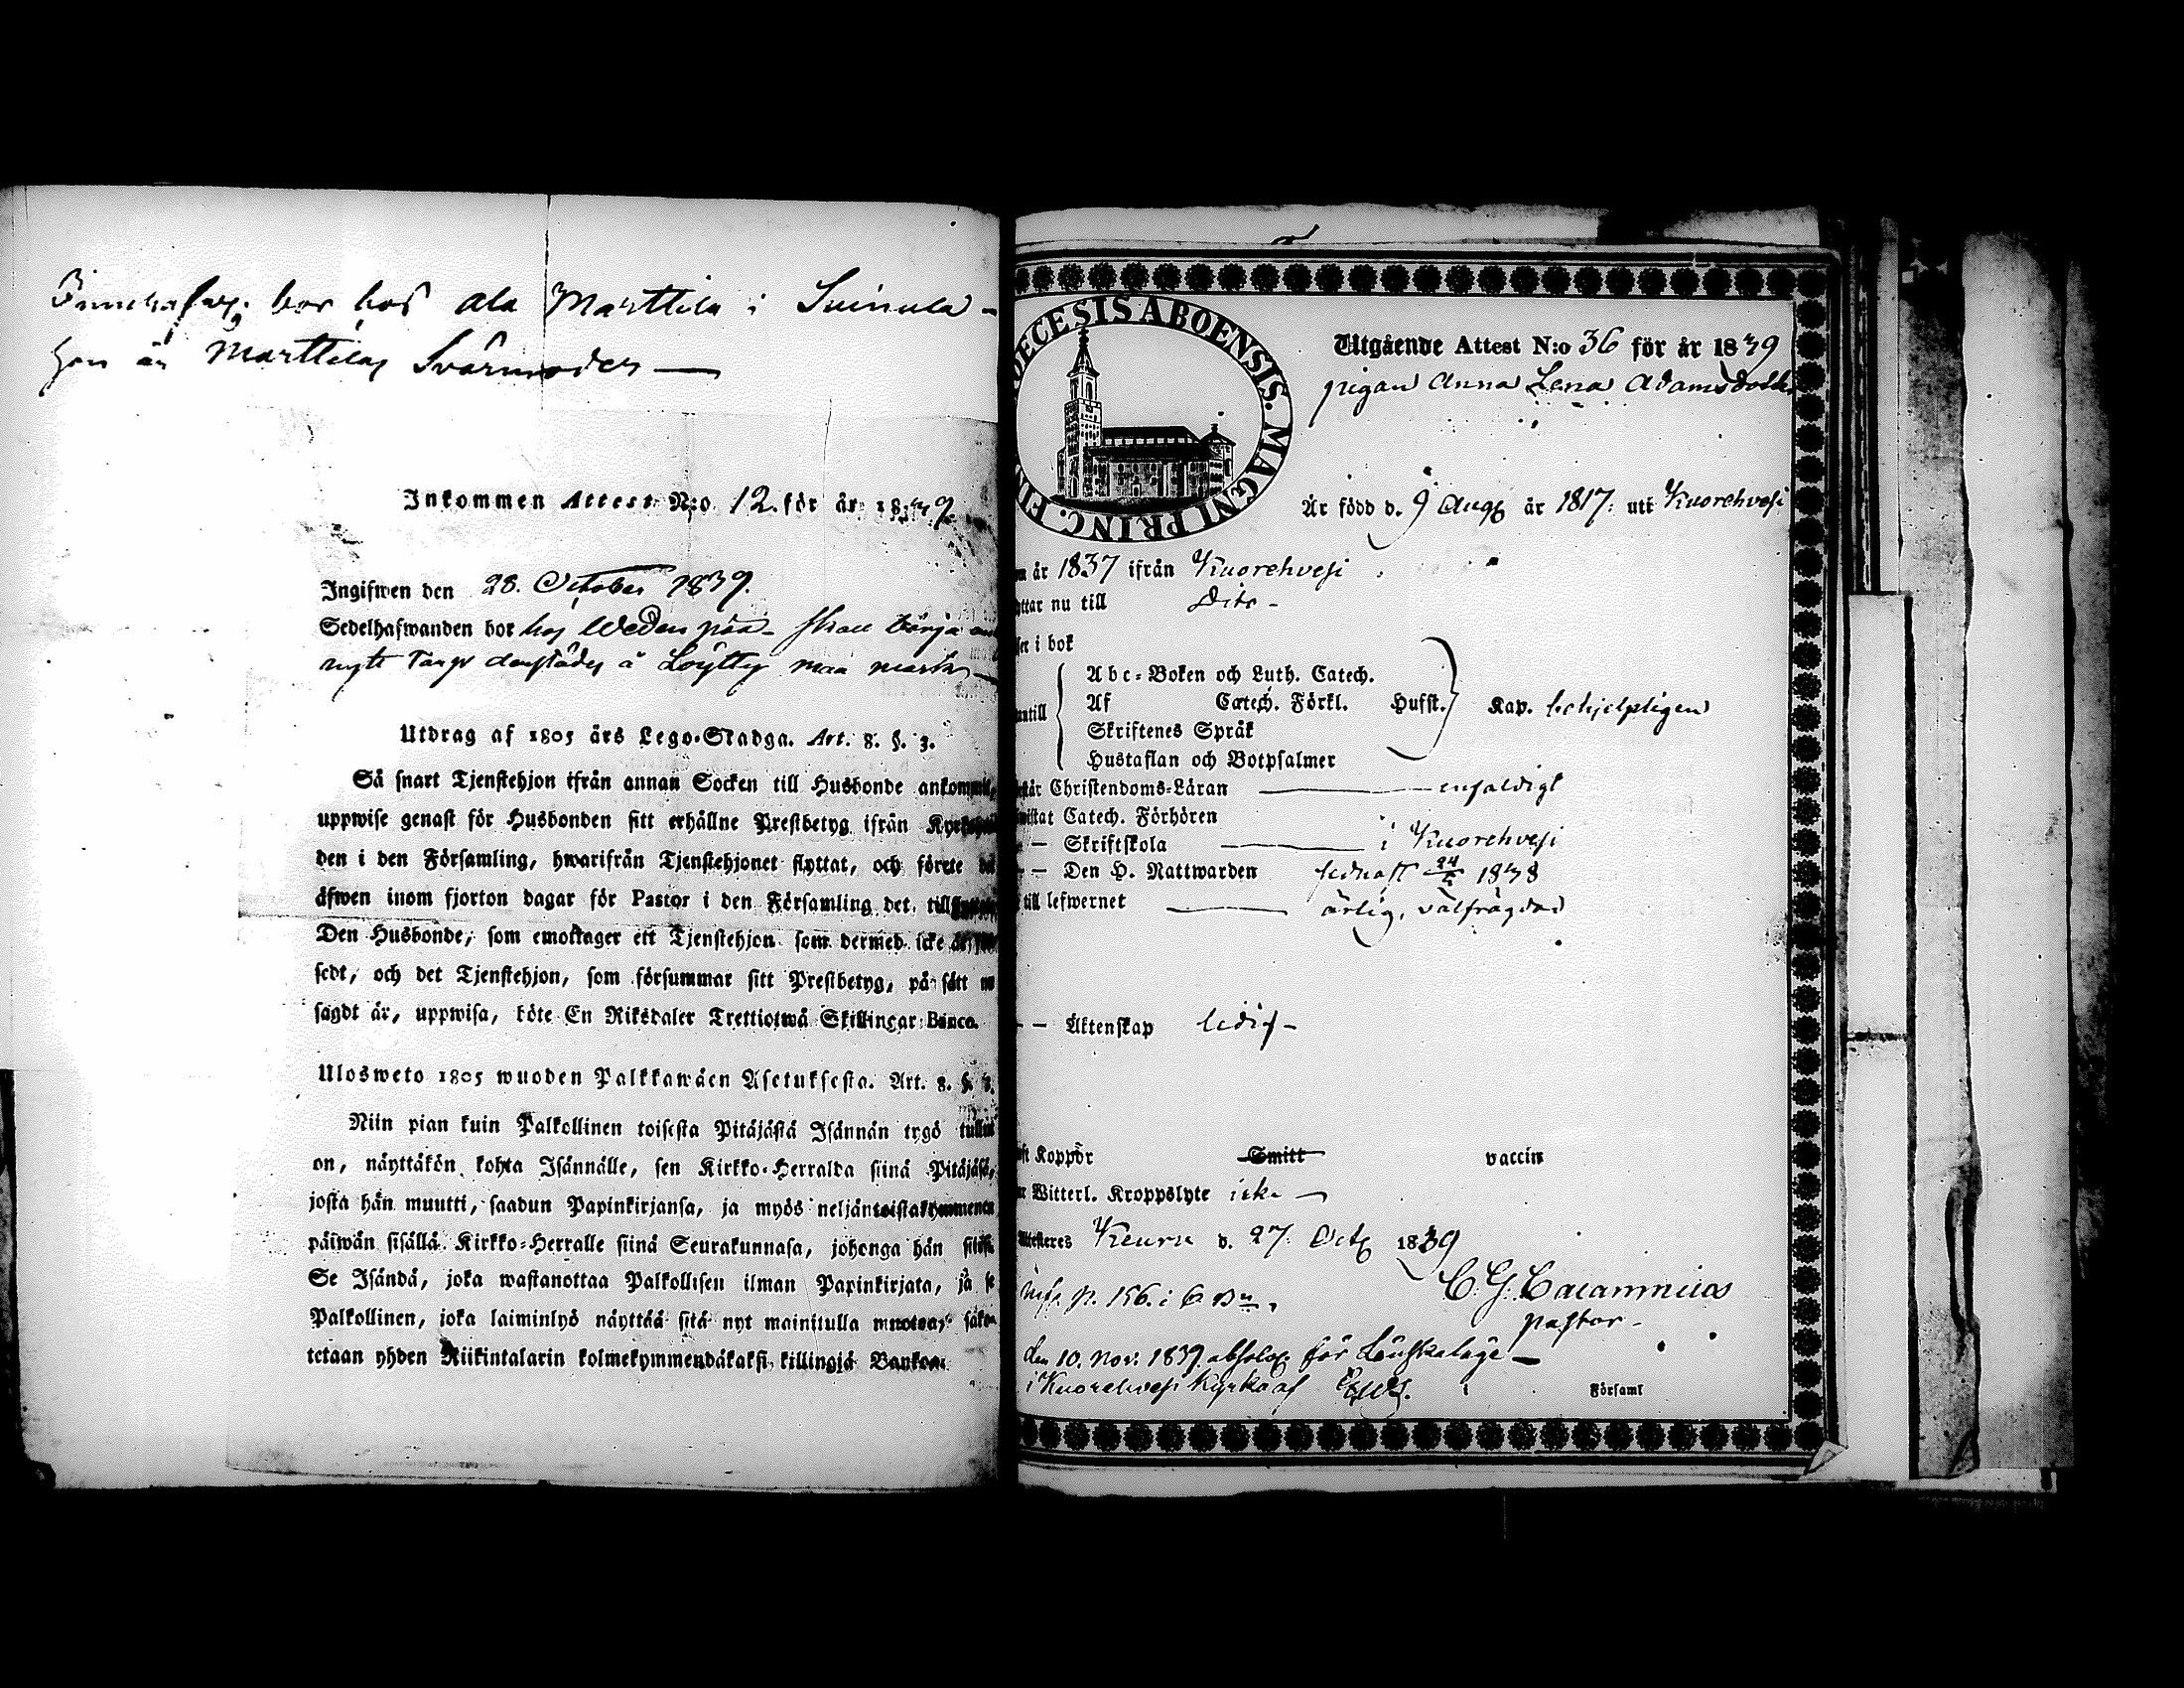 bor hos Ala Marttila i Suinula -
Hon är Marttilas Svärmoder —
Inkommen Attest N:o 12. för år 1839.
Ingifwen den 28. October 1839.
Sedelhafwanden bor hos Weden pää - skall börja
nytt Torp derstädes å Löytty maa
Utdrag af 1805 års Lego-Stadga. Art. 8. §. 3.
Så snart Tjenstehjon ifrån annan Socken till Husbonde
uppwise genast för Husbonden sitt erhållne Prestbetyg ifrån
den i den Församling, hwarifrån Tjenstehjonet flyttat, och förete
äfwen inom fjorton dagar för Pastor i den Församling det
Den Husbonde, som emottager ett Tjenstehjon som dermed icke
sedt, och det Tjenstehjon, som försummar sitt Prestbetyg, på sätt nu
sagdt är, uppwisa, böte En Riksdaler Trettiotwå Skillingar Banco.
Ulosweto 1805 wuoden Palkkawäen Asetuksesta. Art. 8. §. 3.
Niin pian kuin Palkollinen toisesta Pitäjästä Isännän tygö tullut
on, näyttäkön kohta Isännälle, sen Kirkko-Herralda siinä Pitäjäsä,
josta hän muutti, saadun Papinkirjansa, ja myös neljäntoistakymmenen
päiwän sisällä Kirkko-Herralle siinä Seurakunnasa, johonga hän
Se Isändä, joka wastanottaa Palkollisen ilman Papinkirjata, ja se
Palkollinen, joka laiminlyö näyttää sitä nyt mainitulla muotoa, sako-
tetaan yhden Riikintalarin kolmekymmendäkaksi killingiä Bankoa.
DECESIS ABOENSIS. MAGNI PRINC. FIN
Utgående Attest N:o 36 för år 1839
pigan Anna Lena Adamsdotter
Är född d. 9 Aug är 1817: uti Kuorehvesi
år 1837 ifrån Kuorehvesi
nu till Dito -
i bok
Abc-Boken och Luth. Catech.
Af Catech. Förkl. Hufst. Kap. behjelpligen
Skriftenes Språk
Hustaflan och Botpsalmer
Christendoms-Läran — enfaldigt
Catech. Förhören
— Skriftskola — i Kuorehvesi
— Den H. Nattwarden sednast 1838
till lefwernet — ärlig, välfrägdad
— Äktenskap ledig -
Koppor Smitt vaccin
Witterl. Kroppslyte icke —
Keuru d. 27. Oct 1839
p. 156. i
pastor -
den 10. Nov. 1839. absolv. för Lönskaläge —
i Kuorehvesi Kyrka af
Församl